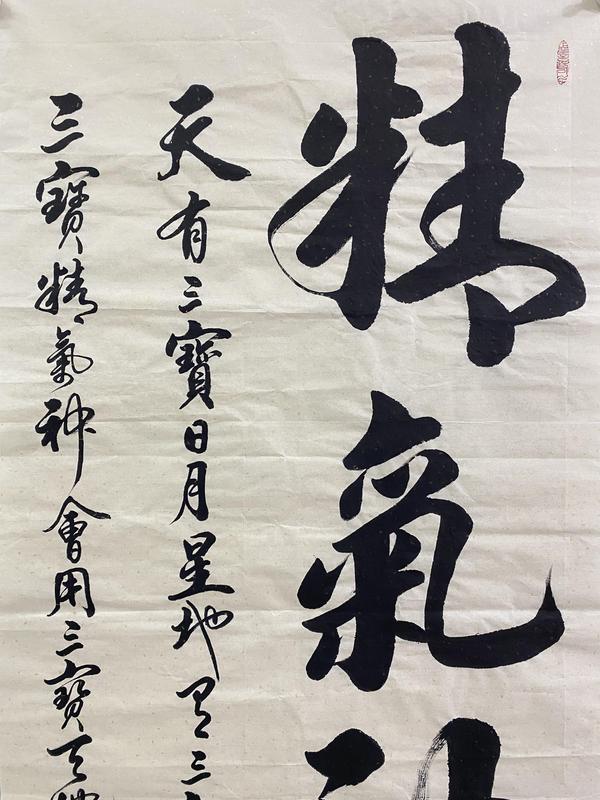 精氣神
天有三寶日月星地有三
三寶精氣神會用三寶天地